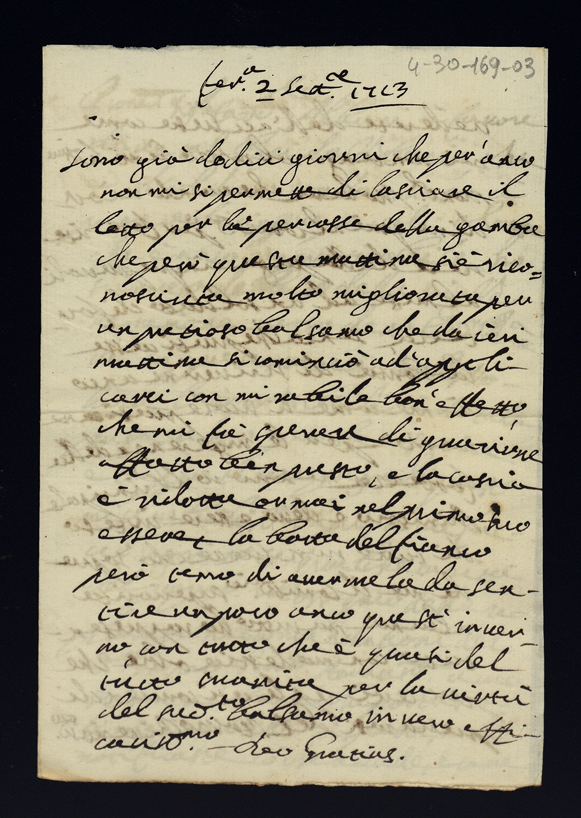 4-30-169-03
Fer.a 2 Sett.e 1713
Sono già dodici giorni che per anco
non mi si permette di lasciare il
letto per le percosse della gamba
che però questa mattina si è rico=
nosciuta molto migliorata per
un pretioso balsamo che da ieri
mattina si cominciò ad appli
carci con mirabile bon effetto
che mi fà sperare di guarirne
affatto ben presto, e la coscia
è ridotta ormai nel primo suo
essere, la botta del fianco
però temo di avermela da sen-
tire un poco anco quest'inver-
no con tutto che è quasi del
tutto svanita per la virtù
del sud.to balsamo in vero effi-
caciss.mo Deo Gratias.